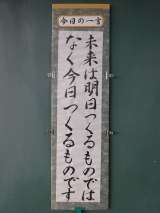 今日の一言
未来は明日つくるものでは
なく今日つくるものです